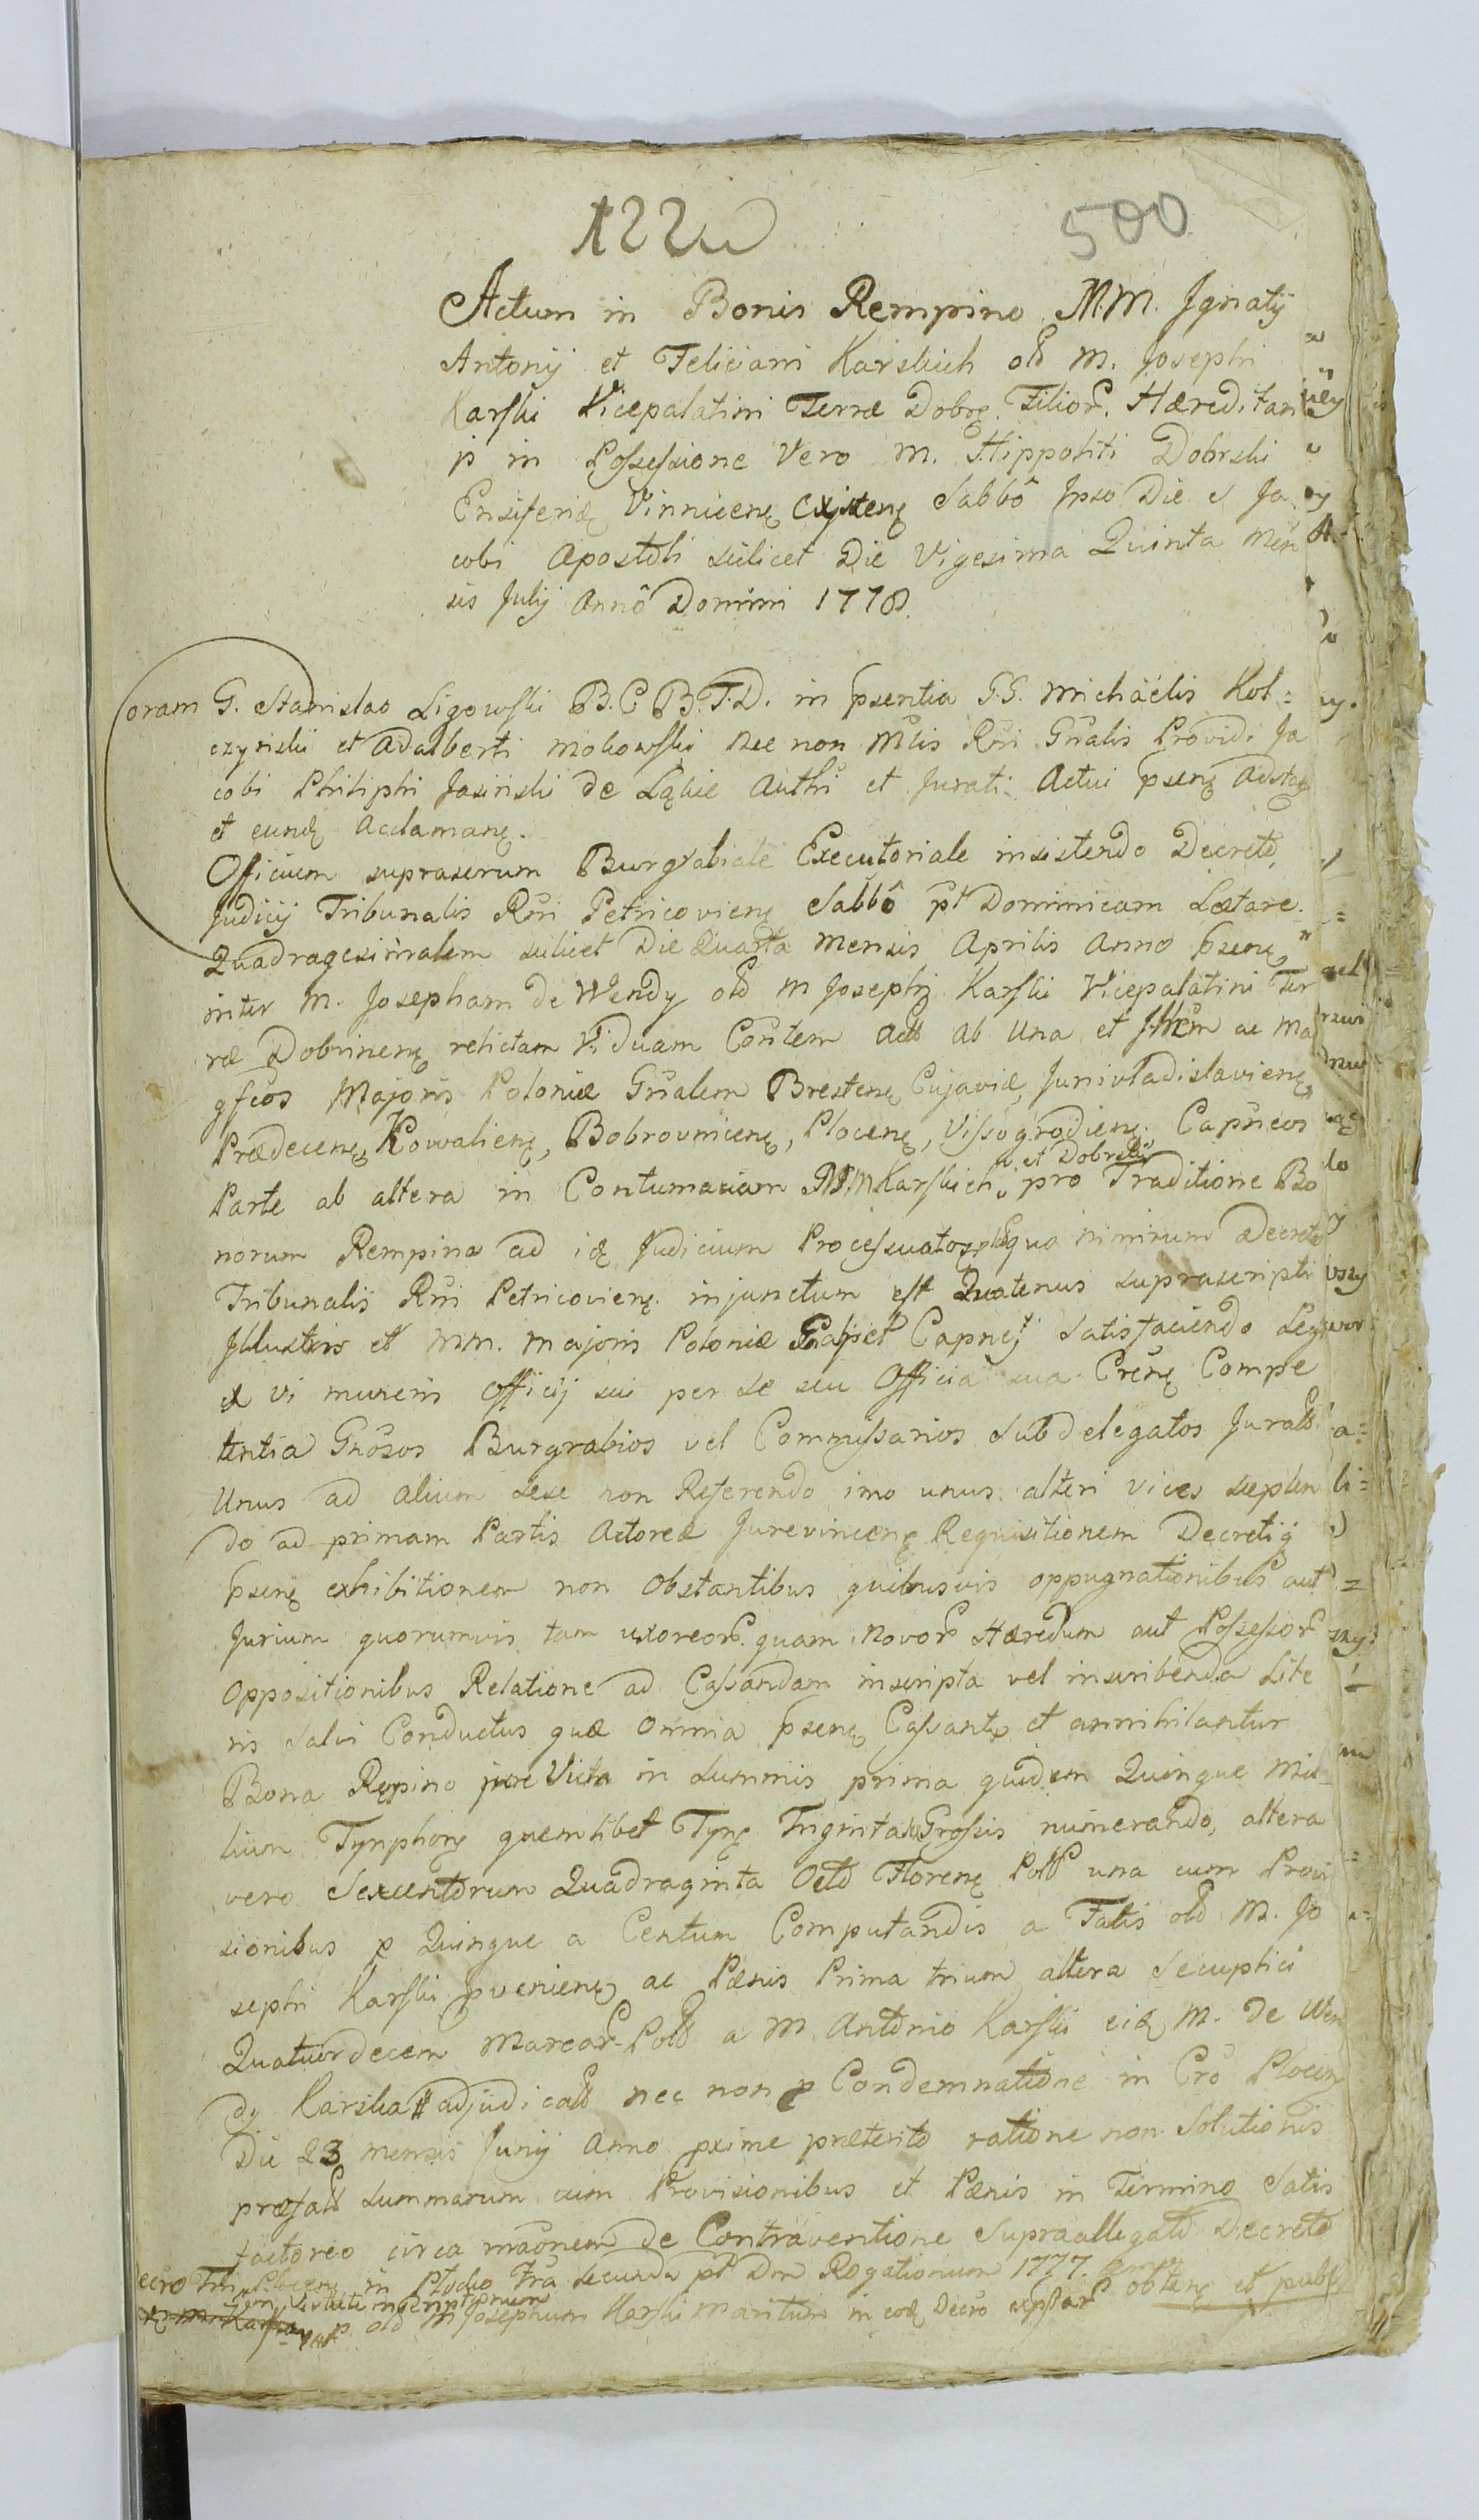 500
Actum in Bonis Rempino M.M. Jgnatij
Antonij et Feliciani Karskich old M. Josephi
Karski Vicepalatini Terræ Dobrę. Filior. Hæreditarijs
in Possessione Vero M. Hippoliti Dobrski
Ensiferidę Vinnicenę Existenę Sabbô Jpso Die S Ja
cobi Apostoli scilicet Die Vigesima Quinta Men
sis Julij Annô Domini 1778.
Coram G. Stanislao Ligowski B.C.B.T.D. in psentia G.G. Michaëlis Kol=
czynski et Adalberti Mokowski nec non Mtlis Rni Gnalis Providi Ja
cobi Philiphi Jasinski de Ląkie Authi et Jurati Actui psenę Adstaę
et eundę Acclamanę.
Officium suprascrum Burgrabiale Executoriale insistendo Decreto,
Judicij Tribunalis Rni Petricovienę Sabbô pt Dominicam Lætare.
Quadragesimalem scilicet Die Quarta Mensis Aprilis Anno psenę
inter M. Josepham de Wendy old M Josephi Karski Vicepalatini Ter
ræ Dobrinenę relictam Viduam Contem Actt ab Una et Jllrem ac Ma
gfcos Majoris Poloniæ Gnalem Brestenę Cujaviæ, Junivladislavienę,
Prædecenę, Kowalienę, Bobrovnicenę, Plocenę, Vissogrodienę. Capneos
et Dobrski
Parte ab altera in Contumaciam MM Karskich pro Traditione Bo
norum Rempina ad idę Judicium Processuatos, quo nimirum Decreto
Tribunalis Rni Petricovienę. injunctum est Quatenus suprascripti
Jllustris et MM. Majoris Poloniæ Gnalis et Capnei Satisfaciendo Legi
ex vi muneris Officij sui per se seu Officia sua Crenę Compe
tentia Gnosos Burgrabios vel Commissarios Subdelegatos Juratt
Unus ad alium sese non Referendo imo unus alteri vices supplen
do ad primam Partis Actoreæ Jurevincenę Requisitionem Decretiq
psenę exhibitionem non Obstantibus quibusvis oppugnationibus aut
Jurium quorumvis tam uxoreor. quam Novor Hæredum aut Possessor
Oppositionibus Relatione ad Cassandam inscripta vel inscribenda Lite
ris Salvi Conductus quæ Omnia psenę Cassantr et annihilantur
Bona Rępino jure Victa in Summis prima quidem Quinque Mil
lium Tynphonę quemlibet Tynę Triginta Grossis numerando, altera
vero Sexcentorum Quadraginta Octo Florenę Poltt una cum Provi
sionibus p Quinque a Centum Computandis a Fatis old M. Jo
sephi Karski pvenienę ac Pænis Prima trium altera Secuplici
Quatuordecem Marcar. Poltt a M Antonio Karski eidę M. de Wen
dy Karska # adjudicatt nec non p Condemnatione in Cro Plocen
Die 23 mensis Junij Anno pxime præterito ratione non Solutionis
præfatt summarum cum Provisionibus et Pænis in Termino Satis
factoreo circa maonem de Contraventione Supraallegato Decreto
Decro Trli Plocenę in Plocko Fra secunda pt Dm Rogationum 1777.
old M Josephum Karski maritum in eodę Decro expssar obtenę et publ